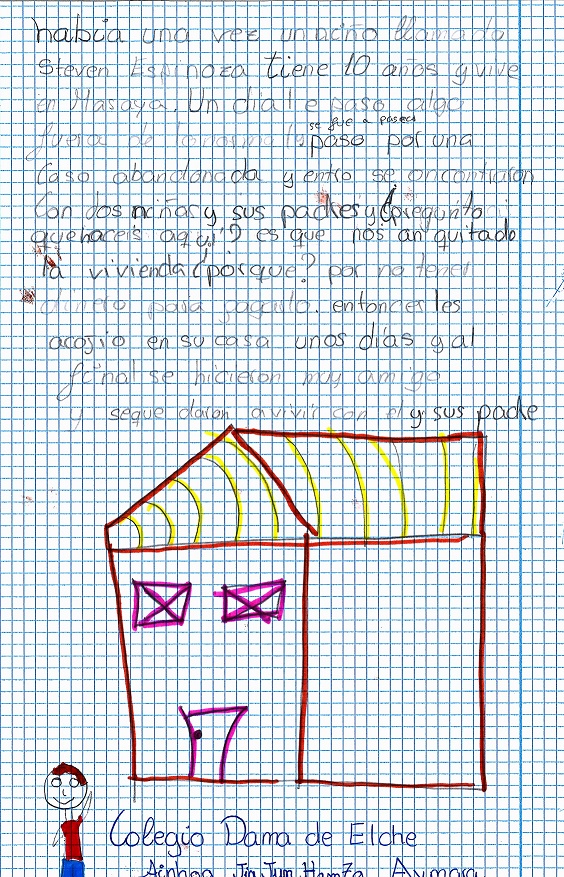 habia una vez un niño llamado
Steven Espinoza tiene 10 años y vive
en Masaya. Un dia le paso algo
fuera de lo normal se fue a pasear
paso por una
Casa abandonada y entro se encontraron
Con dos niñas y sus padres y ¿pregunto
que haceis aqui? es que nos an quitado
la vivienda ¿porque? por no tener
dinero para pagarlo. entonces les
acojio en su casa unos días y al
final se hicieron muy amigo
y seque daron a vivir con el y sus padre
Colegio Dama de Elche
Ainhoa Jin Jum Hamza Aymara